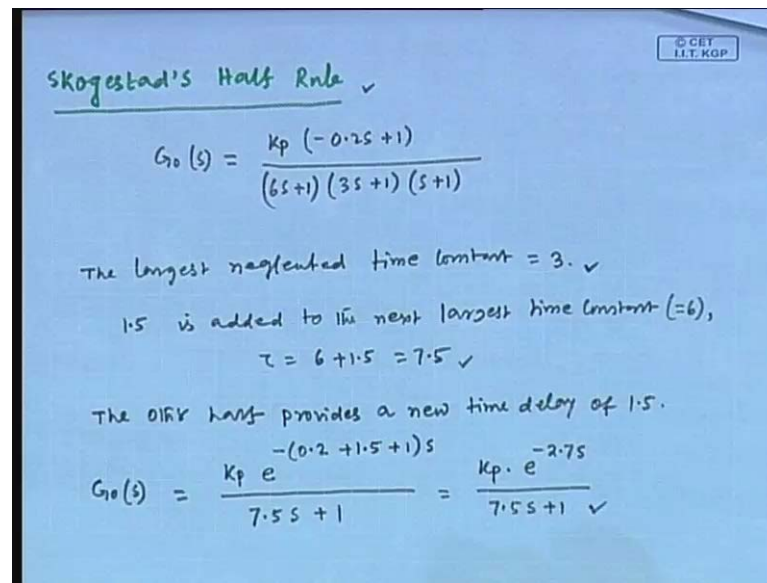 © CET
I.I.T. KGP
Skogestad's Half Rule ✓
G₀(s) = Kp (-0.2s +1) / (6s+1) (3s+1) (s+1)
The longest neglected time constant = 3. ✓
1.5 is added to the next largest time constant (=6),
τ = 6 +1.5 = 7.5 ✓
The other half provides a new time delay of 1.5.
G₀(s) = Kp e^-(0.2 +1.5 +1)s / 7.5s + 1 = Kp. e^-2.7s / 7.5s +1 ✓